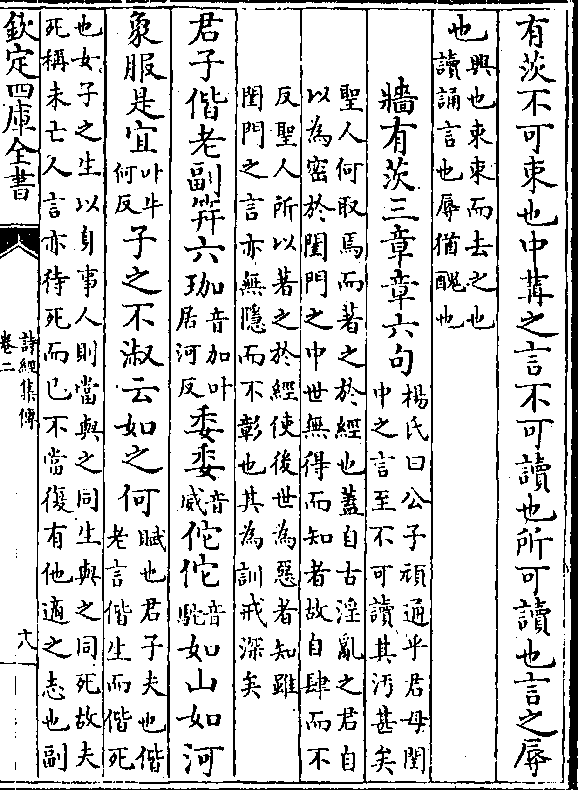 有茨不可束也中冓之言不可讀也所可讀也言之辱
也興也束束而去之也
讀誦言也辱猶醜也
牆有茨三章章六句楊氏曰公子頑通乎君母閨
中之言至不可讀其汚甚矣
聖人何取焉而著之於經也蓋自古淫亂之君自
以為密於閨門之中世無得而知者故自肆而不
反聖人所以著之於經使後世為惡者知雖
閨門之言亦無隱而不彰也其為訓戒深矣
君子偕老副笄六珈音加叶居河反委委音威佗佗音駝如山如河
象服是宜叶牛何反子之不淑云如之何賦也君子夫也偕
老言偕生而偕死
也女子之生以身事人則當與之同生與之同死故夫
死稱未亡人言亦待死而已不當復有他適之志也副
欽定四庫全書
詩經集傳
卷二
十八